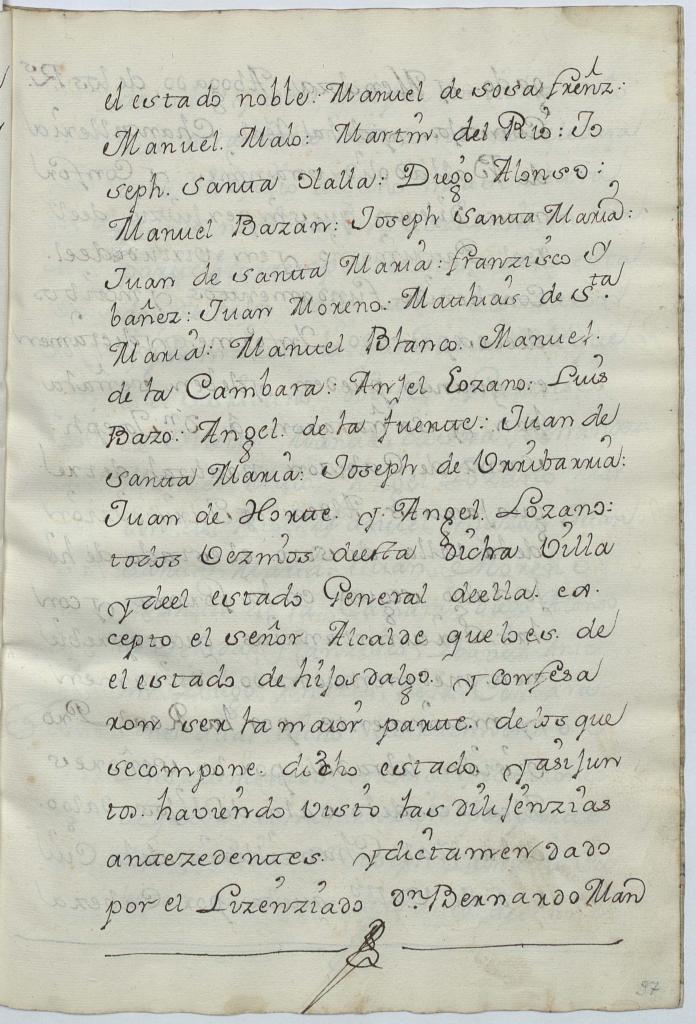 el estado noble: Manuel de sosa frenz:
Manuel. Malo: Martin. del Rio: Jo
seph. santta Olalla: Diego Alonso:
Manuel Bazan: Joseph Santta Maria:
Juan de santta Maria: franzisco Y
bañez: Juan Moreno: Matthias de sta
Maria: Manuel Blanco. Manuel.
de la Cambara: Anjel Lozano: Luis
Bazo: Angel. de la fuentte: Juan de
santta Maria: Joseph de Urribarria:
Juan de Hortte. y. Angel. Lozano:
todos Vezinos deesta dicha Villa
y deel estado General deella. ex.
cepto el señor Alcalde que lo es. de
el estado de hijos dalgo. y confesa
ron ser la maior partte. de los que
secompone. dicho estado. y asi jun
tos. haviendo visto las dilijenzias
anttezedenttes. y dictamen dado
por el Lizenziado dn. Bernardo Man
97